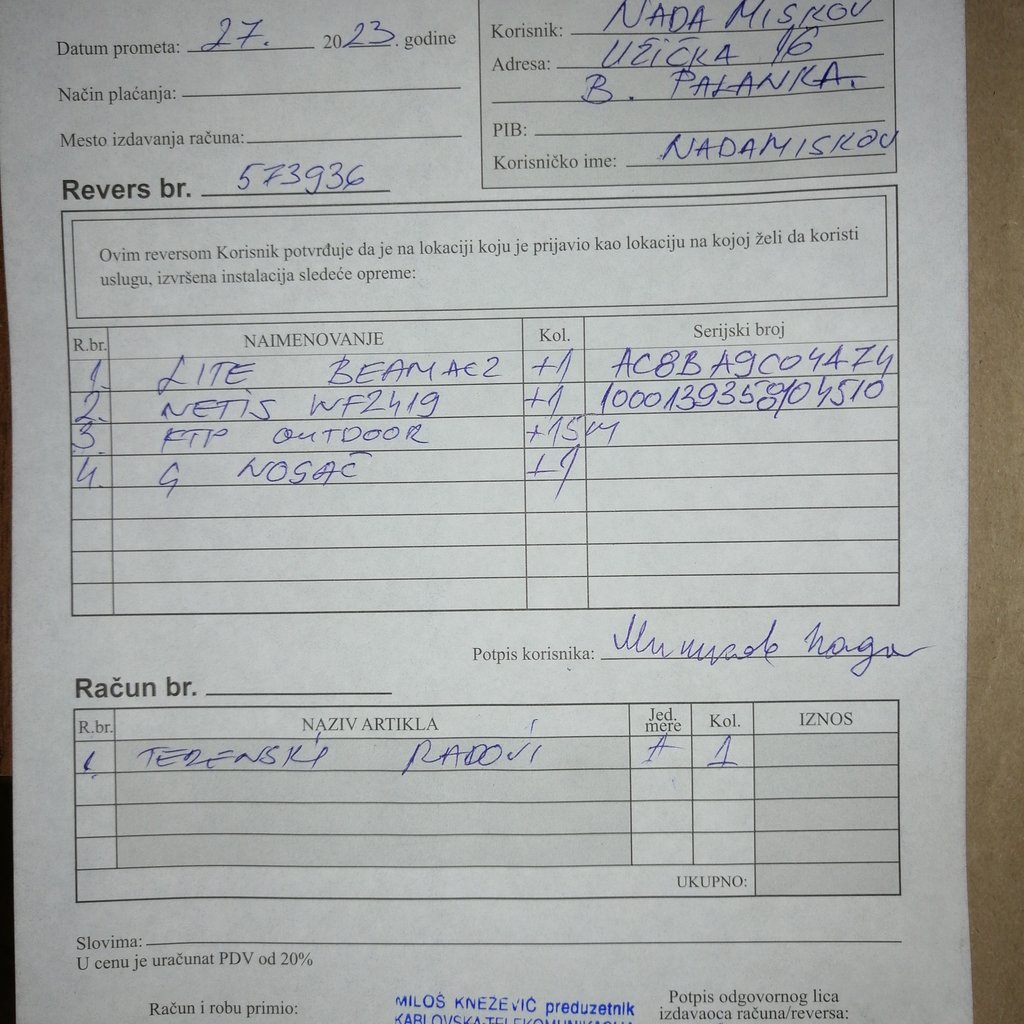 Korisnik: NADA MISKOV
Datum prometa: 27. 2023. godine
Adresa: UŽIČKA 16
B. PALANKA.
Način plaćanja:
PIB:
Mesto izdavanja računa:
Korisničko ime: NADAMISKOV
Revers br. 573936
Ovim reversom Korisnik potvrđuje da je na lokaciji koju je prijavio kao lokaciju na kojoj želi da koristi
uslugu, izvršena instalacija sledeće opreme:
R.br. NAIMENOVANJE Kol. Serijski broj
1. LITE BEAM AC2 +1 AC8BA9C04A74
2. NETIS WF2419 +1
3. FTP OUTDOOR +15M
4. G NOSAČ +1
Potpis korisnika:
Račun br.
R.br. NAZIV ARTIKLA Jed. mere Kol. IZNOS
1. TERENSKI RADOVI 1
UKUPNO:
Slovima:
U cenu je uračunat PDV od 20%
Račun i robu primio:
MILOŠ KNEŽEVIĆ preduzetnik
KABLOVSKA-TELEKOMUNIKACIJA
Potpis odgovornog lica
izdavaoca računa/reversa: